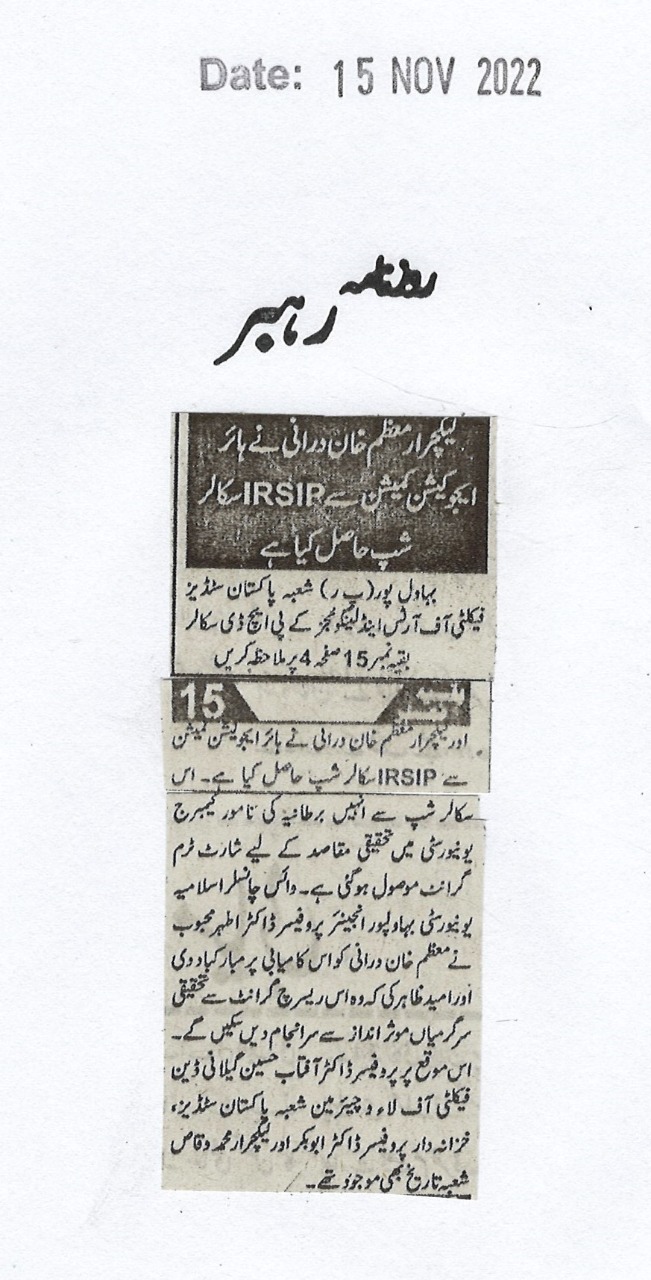 Date: 15 NOV 2022
روزنامہ
رہبر
لیکچرار معظم خان درانی نے ہائر
ایجوکیشن کمیشن سے IRSIP سکالر
شپ حاصل کیا ہے
بہاول پور (پ ر) شعبہ پاکستان سٹڈیز
فیکلٹی آف آرٹس اینڈ لینگوئجز کے پی ایچ ڈی سکالر
بقیہ نمبر 15 صفحہ 4 پر ملاحظہ کریں
15
اور لیکچرار معظم خان درانی نے ہائر ایجوکیشن کمیشن
سے IRSIP سکالر شپ حاصل کیا ہے۔ اس
سکالر شپ سے انہیں برطانیہ کی نامور کیمبرج
یونیورسٹی میں تحقیقی مقاصد کے لیے شارٹ ٹرم
گرانٹ موصول ہوگئی ہے۔ وائس چانسلر اسلامیہ
یونیورسٹی بہاولپور انجینئر پروفیسر ڈاکٹر اطہر محبوب
نے معظم خان درانی کو اس کامیابی پر مبارکباد دی
اور امید ظاہر کی کہ وہ اس ریسرچ گرانٹ سے تحقیقی
سرگرمیاں موثر انداز سے سرانجام دیں سکیں گے۔
اس موقع پر پروفیسر ڈاکٹر آفتاب حسین گیلانی ڈین
فیکلٹی آف لاء و چیئرمین شعبہ پاکستان سٹڈیز،
خزانہ دار پروفیسر ڈاکٹر ابوبکر اور لیکچرار محمد وقاص
شعبہ تاریخ بھی موجود تھے۔